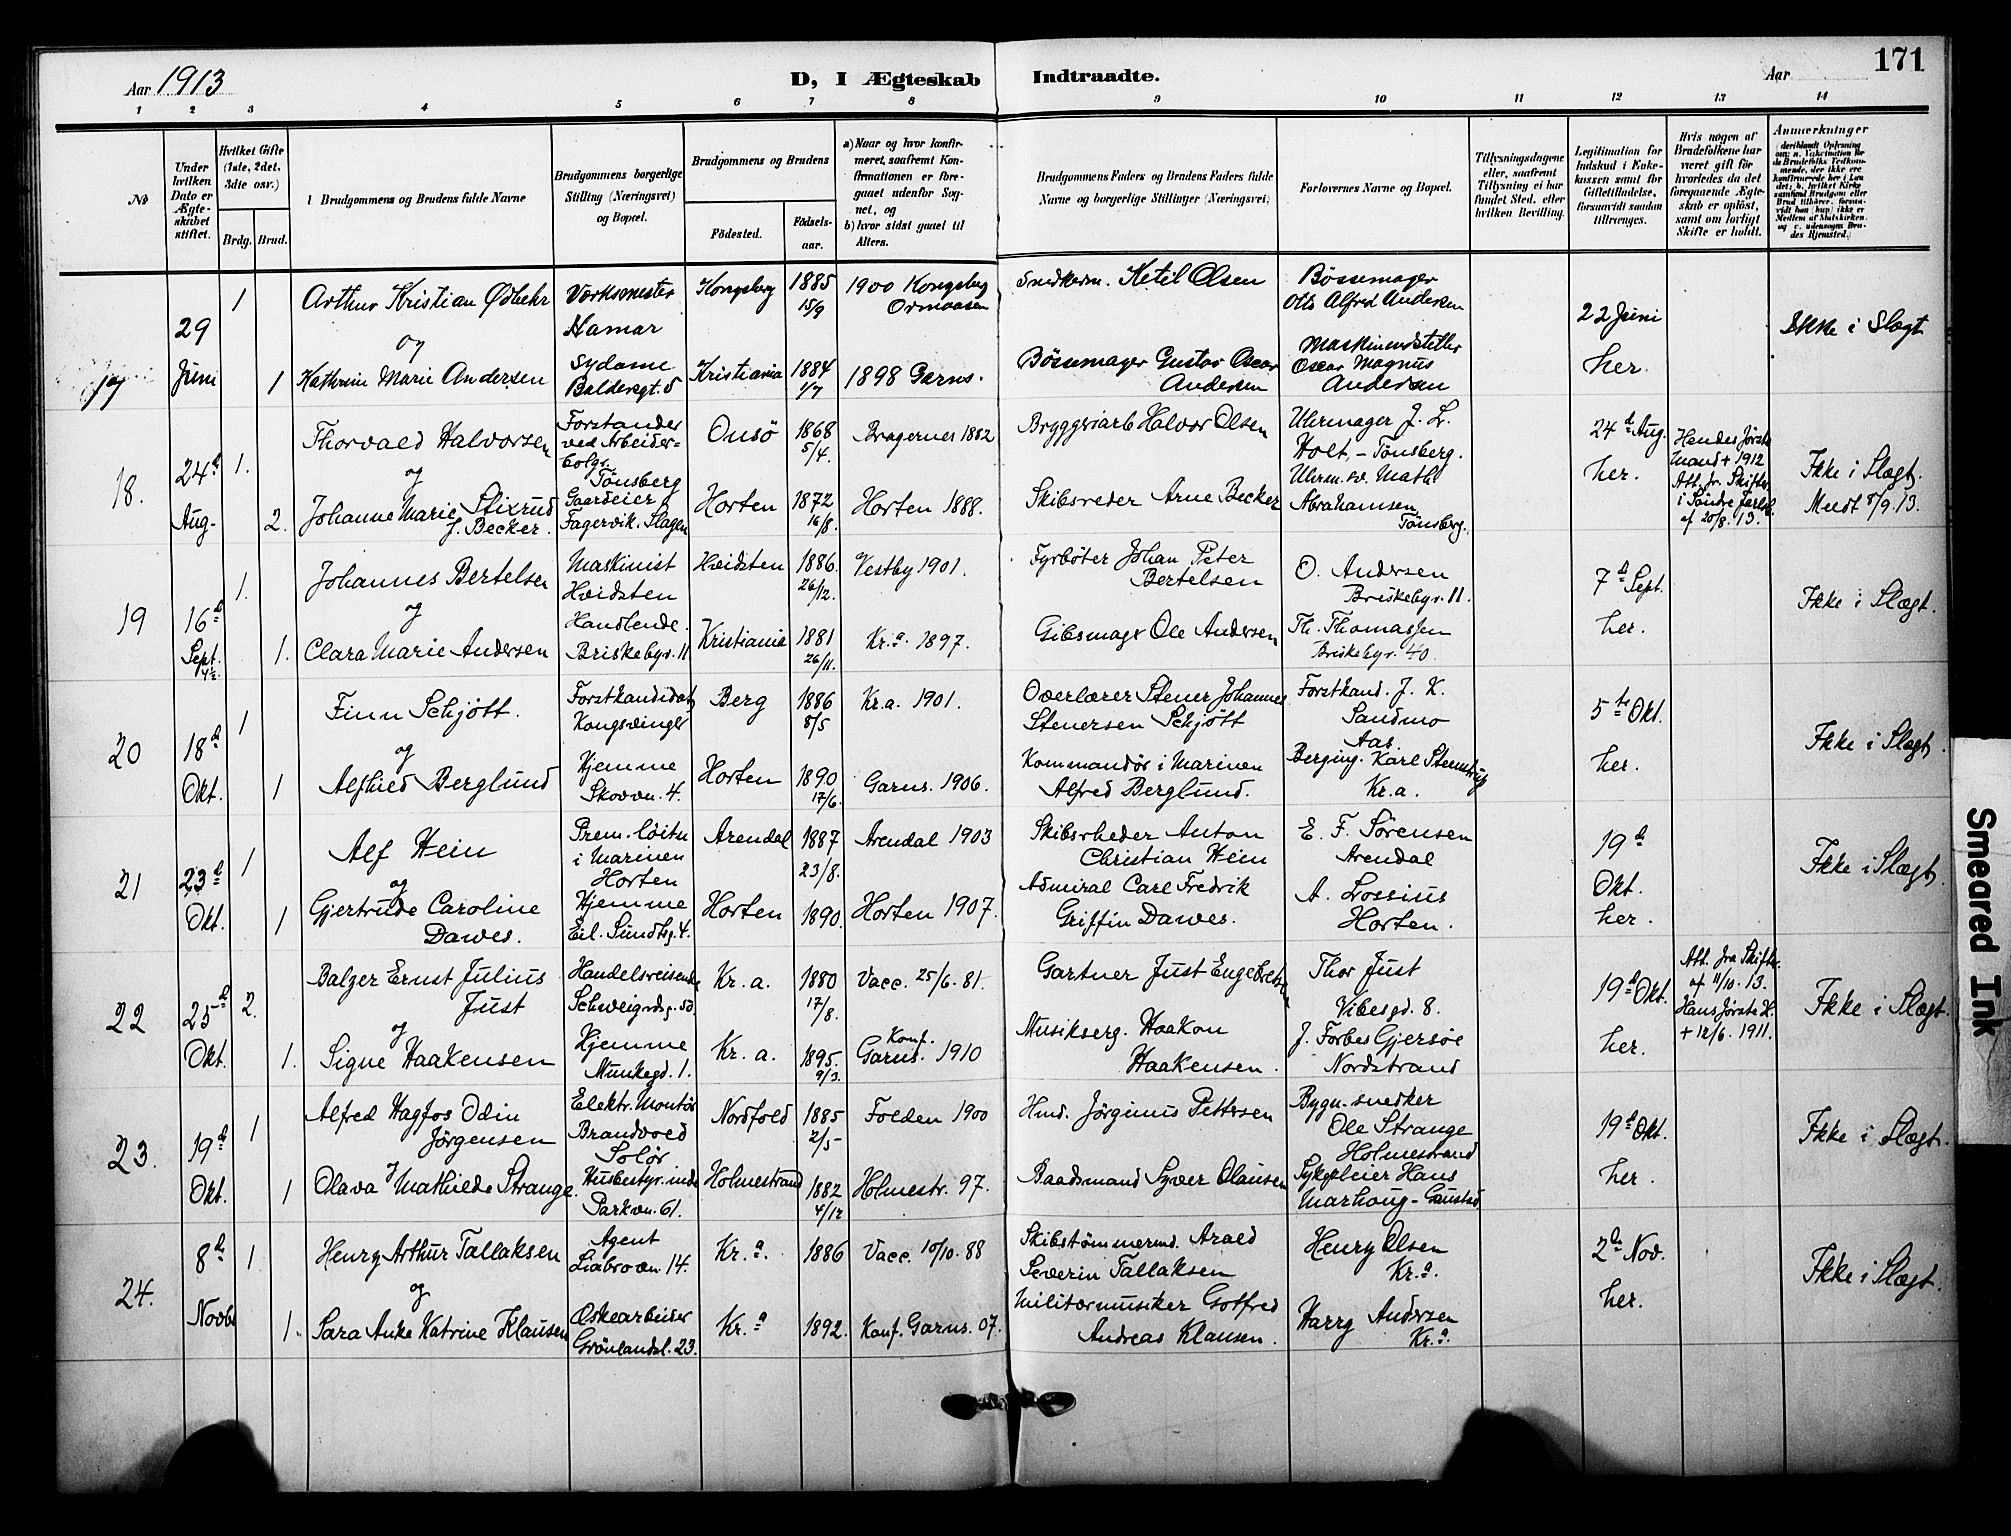 Aar 1913
D, I Ægteskab Indtraadte.
Aar
171
1 2 3 4 5 6 7 8 9 10 11 12 13 14
No
Under hvilken Dato er Ægteskabet stiftet.
Hvilket Gifte (1ste, 2det, 3die osv.)
Brdg. Brud.
Brudgommens og Brudens fulde Navne
Brudgommens borgerlige Stilling (Næringsvei) og Bopæl.
Brudgommens og Brudens
Födested. Födselsaar.
a) Naar og hvor konfirmeret, saafremt Konfirmationen er foregaaet udenfor Sognet, og
b) hvor sidst gaaet til Alters.
Brudgommens Faders og Brudens Faders fulde Navne og borgerlige Stillinger (Næringsvei)
Forlovernes Navne og Bopæl.
Tillysningsdagene eller, saafremt Tillysning ei har fundet Sted, efter hvilken Bevilling.
Legitimation for Indskud i Enkekassen samt for Giftetilladelse, forsaavidt saadan tiltrænges.
Hvis nogen af Brudefolkene har været gift för hvorledes da det foregaaende Ægteskab er oplöst, samt om lovligt Skifte er holdt.
Anmærkninger
17
29
Juni
1
Arthur Kristian Ödbehr
Værksmester
Hamar
Kongsberg
1885
15/9
1900 Kongsberg
Ormaasen
Snedkerm. Ketil Olsen
Bössemager
Otto Alfred Andersen
22 Juni
her.
Ikke i Slægt
og
1
Kathrine Marie Andersen
Sydame
Baldersgt. 5
Kristiania
1884
1/7
1898 Garns.
Bössemager Gustav Oscar
Andersen
Maskinindstiller
Oscar Magnus
Andersen
18.
24d
Aug.
1.
Thorvald Halvorsen
Forstander
ved Arbeider-
bolgs.
Tönsberg
Onsö
1868
5/4.
Bragernes 1882
Bryggeriarb Halvor Olsen
Uhrmager J. L.
Holt, - Tönsberg.
24d Aug.
her.
Hendes förste
Mand + 1912
Att. fr. Skifter
i Söndre Jarlsb.
af 20/8. 13.
Ikke i Slægt.
Meedt 8/9. 13.
og
2.
Johanne Marie Stixrud
f. Becker.
Gaardeier
Fagervik. Slagen
Horten
1872
16/8.
Horten 1888.
Skibsreder Arne Becker
Uhrm. sv. Math.
Abrahamsen
Tönsberg.
19
16d
Sept.
1.
Johannes Bertelsen
Maskinist
Hvidsten
Hvidsten
1886.
26/12.
Vestby 1901.
Fyrböter Johan Peter
Bertelsen
O. Andersen
Briskebyv. 11.
7d Sept.
her.
Ikke i Slægt.
og
1.
Clara Marie Andersen
Handlende.
Briskebyv. 11
Kristiania
1881
26/11.
Kr.a 1897.
Gibsmager Ole Andersen
Th. Thomassen
Briskebyv. 40.
20
18d
Okt.
1
Finn Schjött.
Forstkandidat
Kongsvinger
Berg
1886
8/5
Kr.a. 1901.
Overlærer Stener Johannes
Stenersen Schjött
Forstkand. J. K.
Sandmo
Aas
5te Okt.
her.
Ikke i Slægt.
og
1
Alfhild Berglund
Hjemme
Skovvn. 4.
Horten
1890
17/6.
Garns. 1906.
Kommandör i Marinen
Alfred Berglund.
Berging. Karl Stenstrup
Kr.a.
21
23d
Okt.
1
Alf Hein
Prem. löitn
i Marinen
Horten
Arendal
1887
23/8.
Arendal 1903
Skibsrheder Anton
Christian Hein
E. F. Sörensen
Arendal
19d
Okt.
her.
Ikke i Slægt.
og
1
Gjertrude Caroline
Dawes.
Hjemme
Eil. Sundtsg. 4.
Horten
1890.
Horten 1907.
Admiral Carl Fredrik
Griffin Dawes.
A. Lossius
Horten.
22
25d
Okt.
2.
Balzer Ernst Julius
Just
Handelsreisende
Schweigrdsg. 50
Kr. a.
1880
17/8.
Vacc. 25/6. 81.
Gartner Just Engebretsen
Thor Just
Vibesgd. 8.
19d Okt.
her.
Att. fra Skifter.
af 11/10. 13.
Hans förste H.
+ 12/6. 1911.
Ikke i Slægt.
og
1.
Signe Haakensen
Hjemme
Munkegd. 1.
Kr. a.
1895.
9/3.
Konf.
Garns. 1910
Musikserg. Haakon
Haakensen.
J. Forbes Gjersöe
Nordstrand
23.
19d
Okt.
1
Alfred Hagfos Odin
Jörgensen
Elektr. Montör
Brandvold
Solör
Nordfold
1885
2/5
Folden 1900
Hmd. Jörginus Pettersen
Bygn.snedker
Ole Strange
Holmestrand
19d Okt.
her.
Ikke i Slægt.
og
1
Olava Mathilde Strange.
Husbestyrinde
Parkvn. 61.
Holmestrand
1882
4/12
Holmestr. 97.
Baadsmand Syver Olausen
Sykepleier Hans
Marhaug - Gaustad
24.
8d
Novbr
1
Henry Arthur Tallaksen
Agent
Liabrovn. 14.
Kr.a.
1886
Vacc. 10/10. 88
Skibstömmermd. Arald
Severin Tallaksen
Henry Olsen
Kr.a.
2de Nov.
her.
Ikke i Slægt.
og
1.
Sara Anke Katrine Klausen
Æskearbeider
Grönlandsl. 23.
Kr.a
1892.
Konf. Garns. 07.
Militærmusiker Gotfred
Andreas Klausen.
Harry Andersen
Kr.a.
Smeared Ink